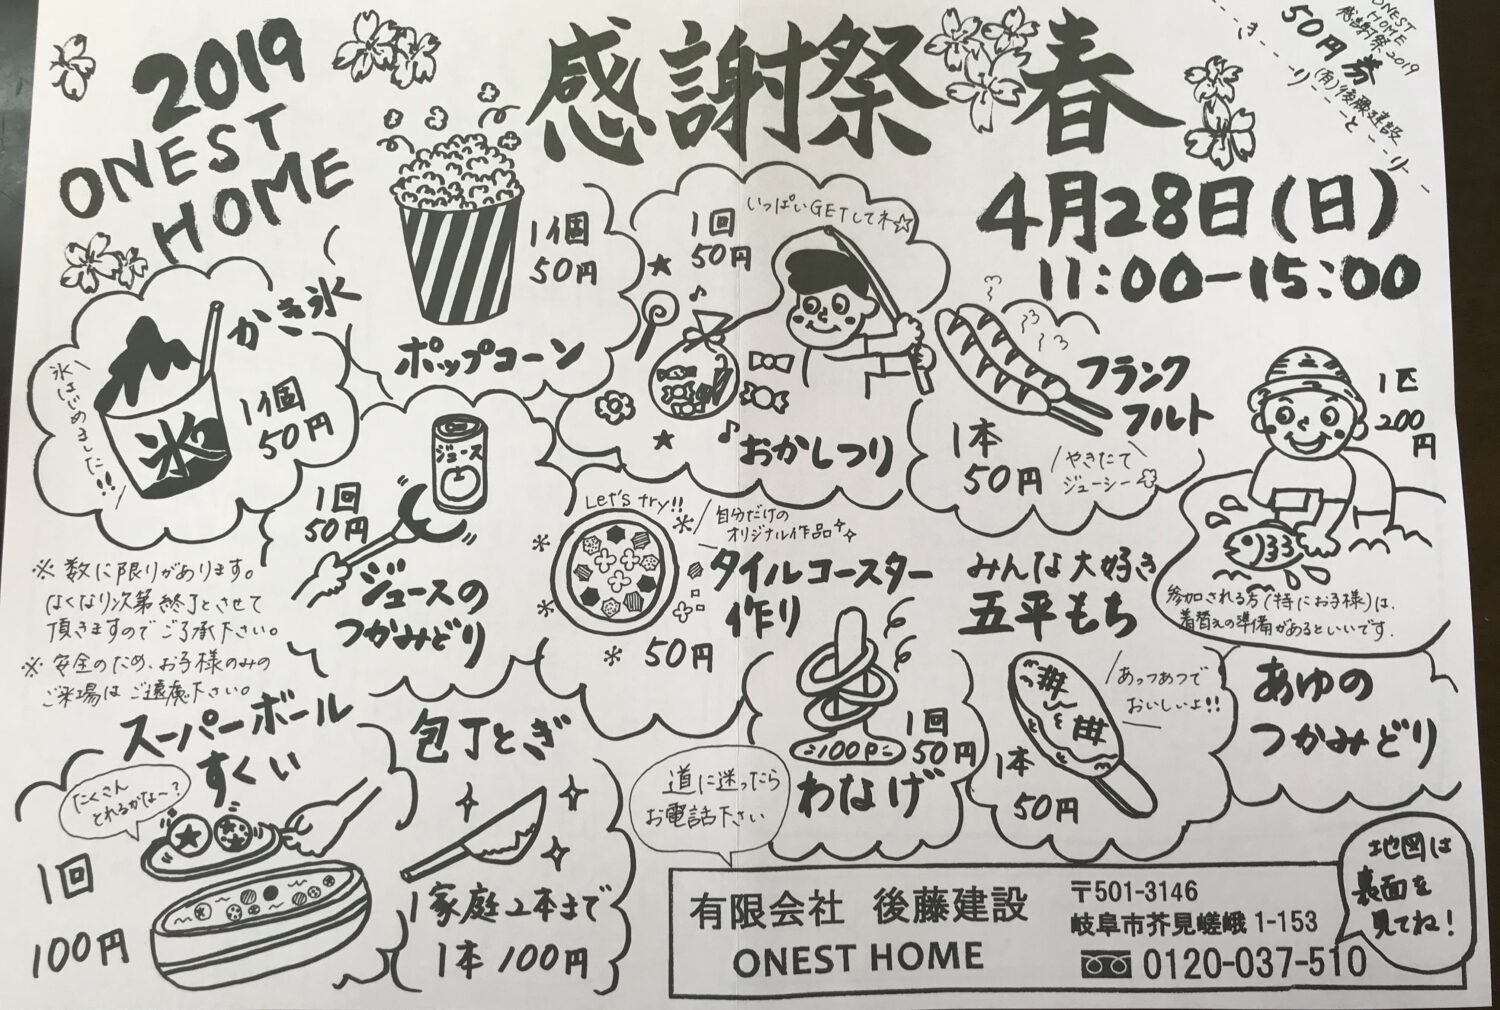 2019
ONEST
HOME
感謝祭 春
ONEST
HOME
感謝祭2019
50円券
(有)後藤建設
きーりーとーり
4月28日(日)
11:00-15:00
1個
50円
ポップコーン
かき氷
氷はじめました!!
氷
1個
50円
いっぱいGETしてネ☆
1回
50円
おかしつり
フランク
フルト
1本
50円
やきたて
ジューシー
1匹
200円
参加される方(特にお子様)は、
着替えの準備があるといいです。
あゆの
つかみどり
ジュース
1回
50円
ジュースの
つかみどり
Let's try!!
自分だけの
オリジナル作品
タイルコースター
作り
50円
みんな大好き
五平もち
あっつあつで
おいしいよ!!
1本
50円
※数に限りがあります。
なくなり次第終了とさせて
頂きますのでご了承下さい。
※安全のため、お子様のみの
ご来場はご遠慮下さい。
スーパーボール
すくい
たくさん
とれるかな〜?
1回
100円
包丁とぎ
1家庭2本まで
1本100円
100P
1回
50円
わなげ
道に迷ったら
お電話下さい
有限会社 後藤建設
ONEST HOME
〒501-3146
岐阜市芥見嵯峨1-153
0120-037-510
地図は
裏面を
見てね!